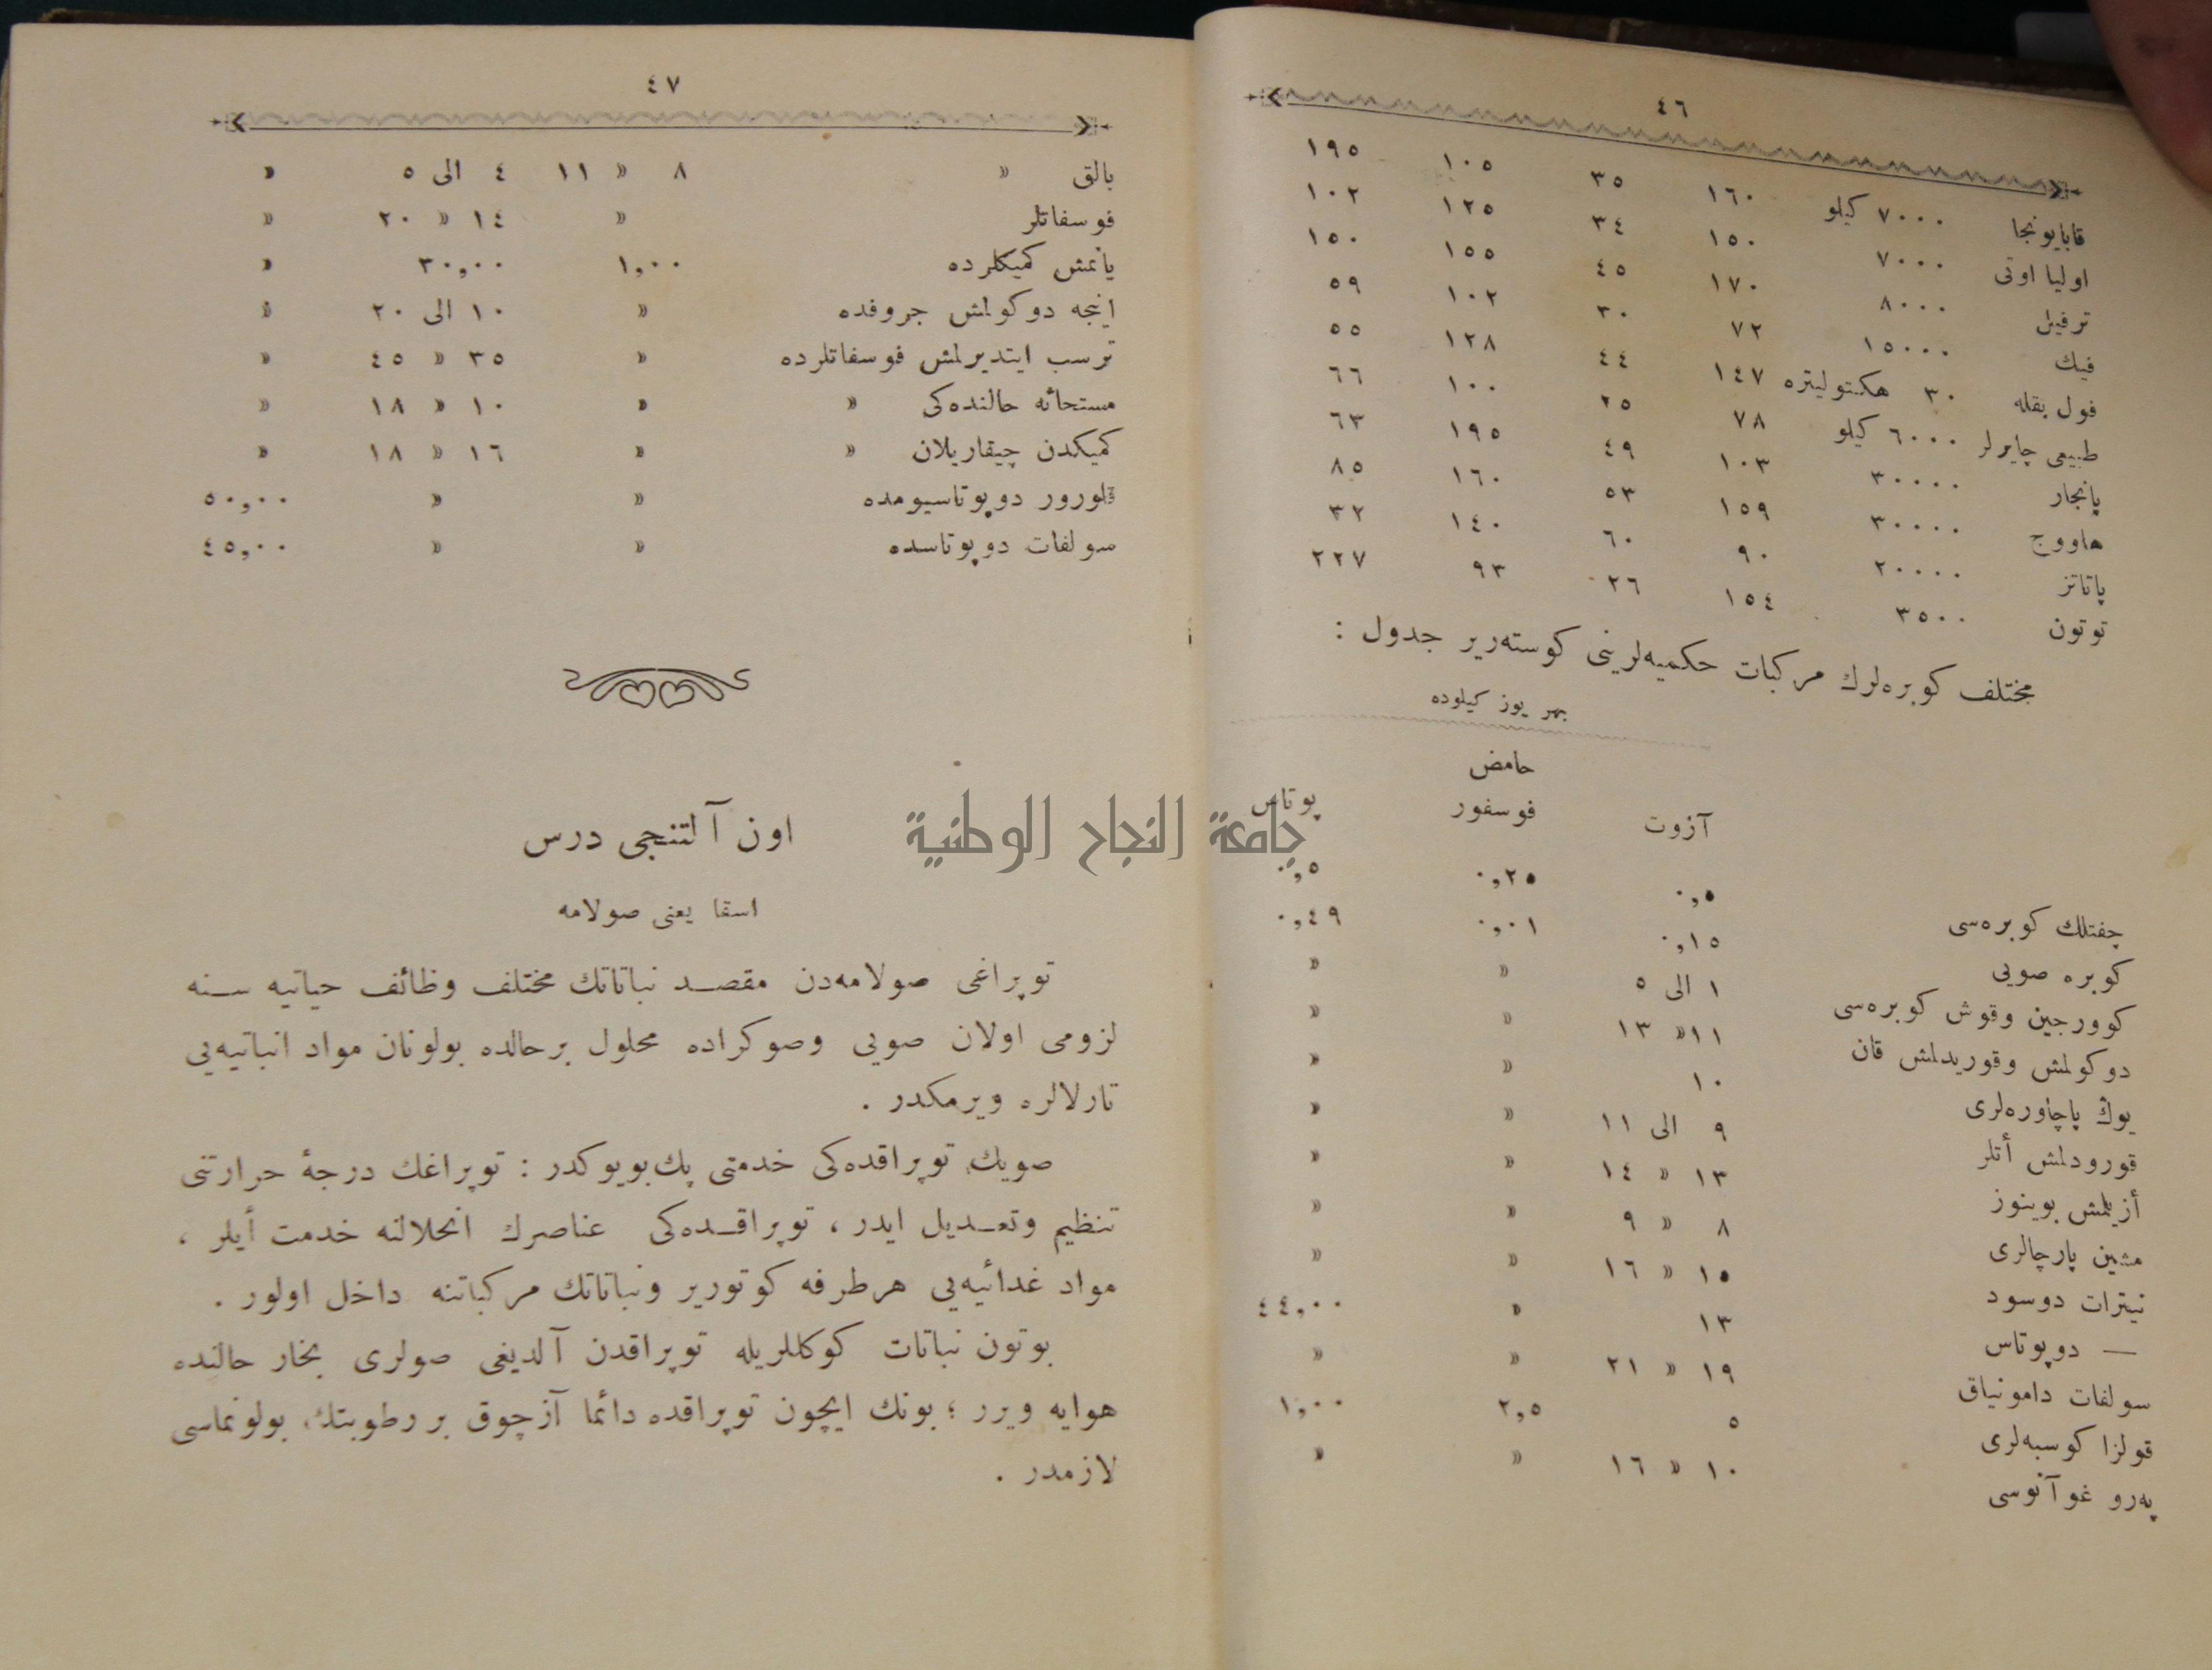 ٤٦
قابايونجا ٧٠٠٠ كيلو ١٦٠ ٣٥ ١٠٥ ١٩٥
اوليا اوتى ٧٠٠٠ ١٥٠ ٣٤ ١٢٥ ١٠٢
ترفيل ٨٠٠٠ ١٧٠ ٤٥ ١٥٥ ١٥٠
فيك ١٥٠٠٠ ٧٢ ٣٠ ١٠٢ ٥٩
فول بقله ٣٠ هكتوليتره ١٤٧ ٤٤ ١٢٨ ٥٥
طبيعى چايرلر ٦٠٠٠ كيلو ٧٨ ٢٥ ١٠٠ ٦٦
پانجار ٣٠٠٠٠ ١٠٣ ٤٩ ١٩٥ ٦٣
هاووج ٣٠٠٠٠ ١٥٩ ٥٣ ١٦٠ ٨٥
پاتاتز ٢٠٠٠٠ ٩٠ ٦٠ ١٤٠ ٣٢
توتون ٣٥٠٠ ١٥٤ ٢٦ ٩٣ ٢٢٧
مختلف كوبره‌لرك مركبات حكميه‌لرينى كوسته‌رير جدول :
بهر يوز كيلوده
آزوت حامض فوسفور پوتاس
چفتلك كوبره‌سى ٠,٥ ٠,٢٥ ٠,٥
كوبره صويى ٠,١٥ ٠,٠١ ٠,٤٩
كوورجين وقوش كوبره‌سى ١ الى ٥ » »
دوكولمش وقوريدلمش قان ١١ » ١٣ » »
يوڭ پاچاوره‌لرى ١٠ » »
قورودلمش أتلر ٩ الى ١١ » »
أزيلمش بوينوز ١٣ » ١٤ » »
مشين پارچالرى ٨ » ٩ » »
نيترات دوسود ١٥ » ١٦ » »
— دوپوتاس ١٣ » ٤٤,٠٠
سولفات دامونياق ١٩ » ٢١ » »
قولزا كوسبه‌لرى ٥ ٢,٥ ١,٠٠
په‌رو غوآنوسى ١٠ » ١٦ » »
٤٧
بالق » ٨ » ١١ ٤ الى ٥ »
فوسفاتلر » ١٤ » ٢٠ »
يانمش كميكلرده ١,٠٠ ٣٠,٠٠ »
اينجه دوكولمش جروفده » ١٠ الى ٢٠ »
ترسب ايتديرلمش فوسفاتلرده » ٣٥ » ٤٥ »
مستحاثه حالنده‌كى » » ١٠ » ١٨ »
كميكدن چيقاريلان » » ١٦ » ١٨ »
قلورور دوپوتاسيومده » » ٥٠,٠٠
سولفات دوپوتاسده » » ٤٥,٠٠
اون آلتنجى درس
اسقا يعنى صولامه
توپراغى صولامه‌دن مقصد نباتاتك مختلف وظائف حياتيه سنه
لزومى اولان صويى وصوكراده محلول برحالده بولونان مواد انباتيه‌يى
تارلالره ويرمكدر .
صويك توپراقده‌كى خدمتى پك بويوكدر : توپراغك درجهٔ حرارتنى
تنظيم وتعديل ايدر ، توپراقده‌كى عناصرك انحلالنه خدمت أيلر ،
مواد غدائيه‌يى هرطرفه كوتورير ونباتاتك مركباتنه داخل اولور .
بوتون نباتات كوكللريله توپراقدن آلديغى صولرى بخار حالنده
هوايه ويرر ؛ بونك ايچون توپراقده دائما آزچوق بررطوبتك بولونماسى
لازمدر .
جامعة النجاح الوطنية